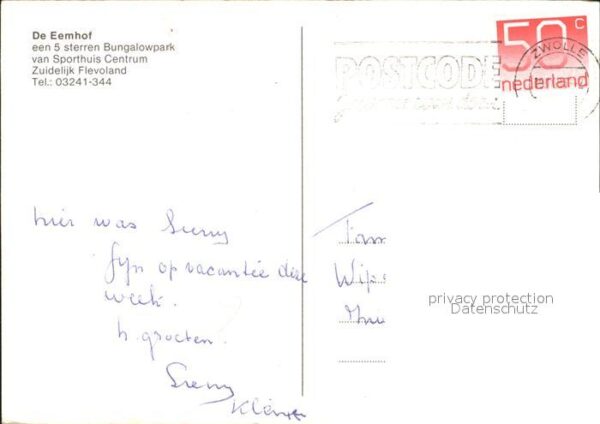 De Eemhof
een 5 sterren Bungalowpark
van Sporthuis Centrum
Zuidelijk Flevoland
Tel.: 03241-344
50 C
nederland
ZWOLLE
POSTCODE
hier was
fijn op vacantie deze
week.
h. groeten.
privacy protection
Datenschutz